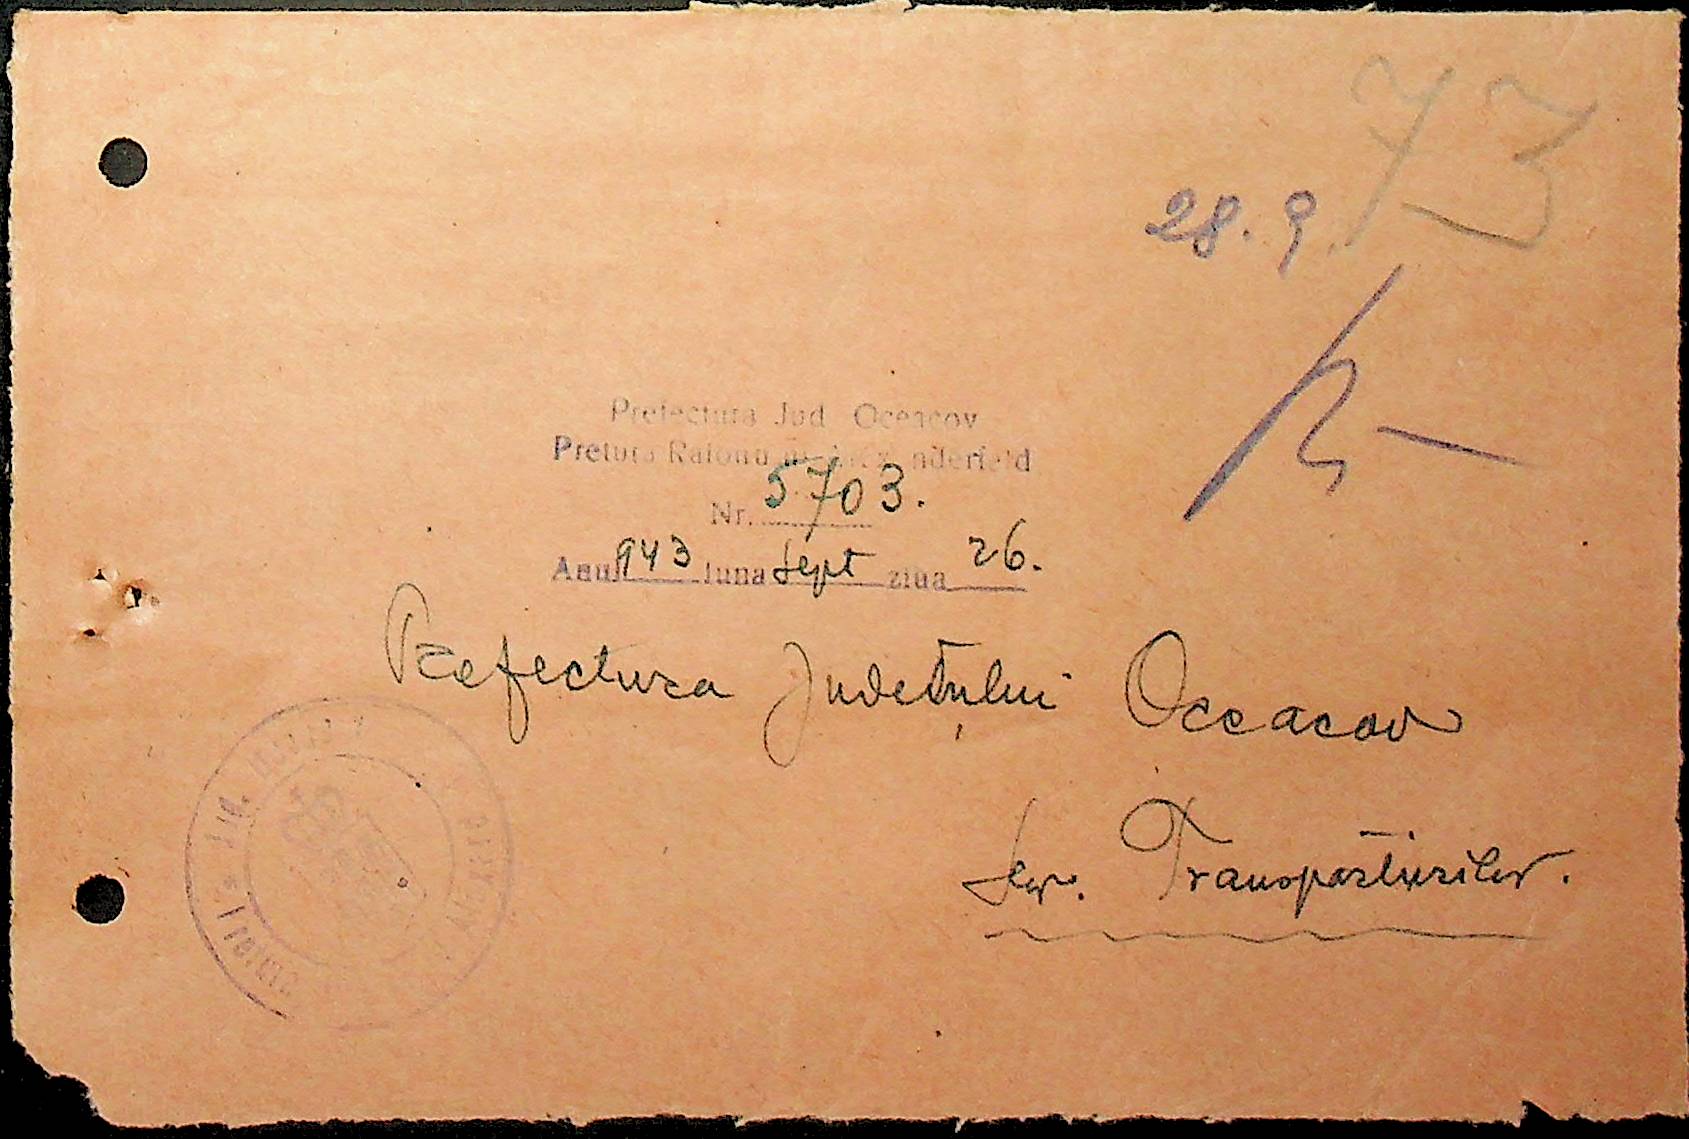 73
28.9.
Prefectura Jud Oceacov
Pretura Raionului
Nr. 5703.
Anul 943 luna Sept ziua 26.
Prefectura Județului Oceacov
Serv. Transporturilor.
Jud. Pretura